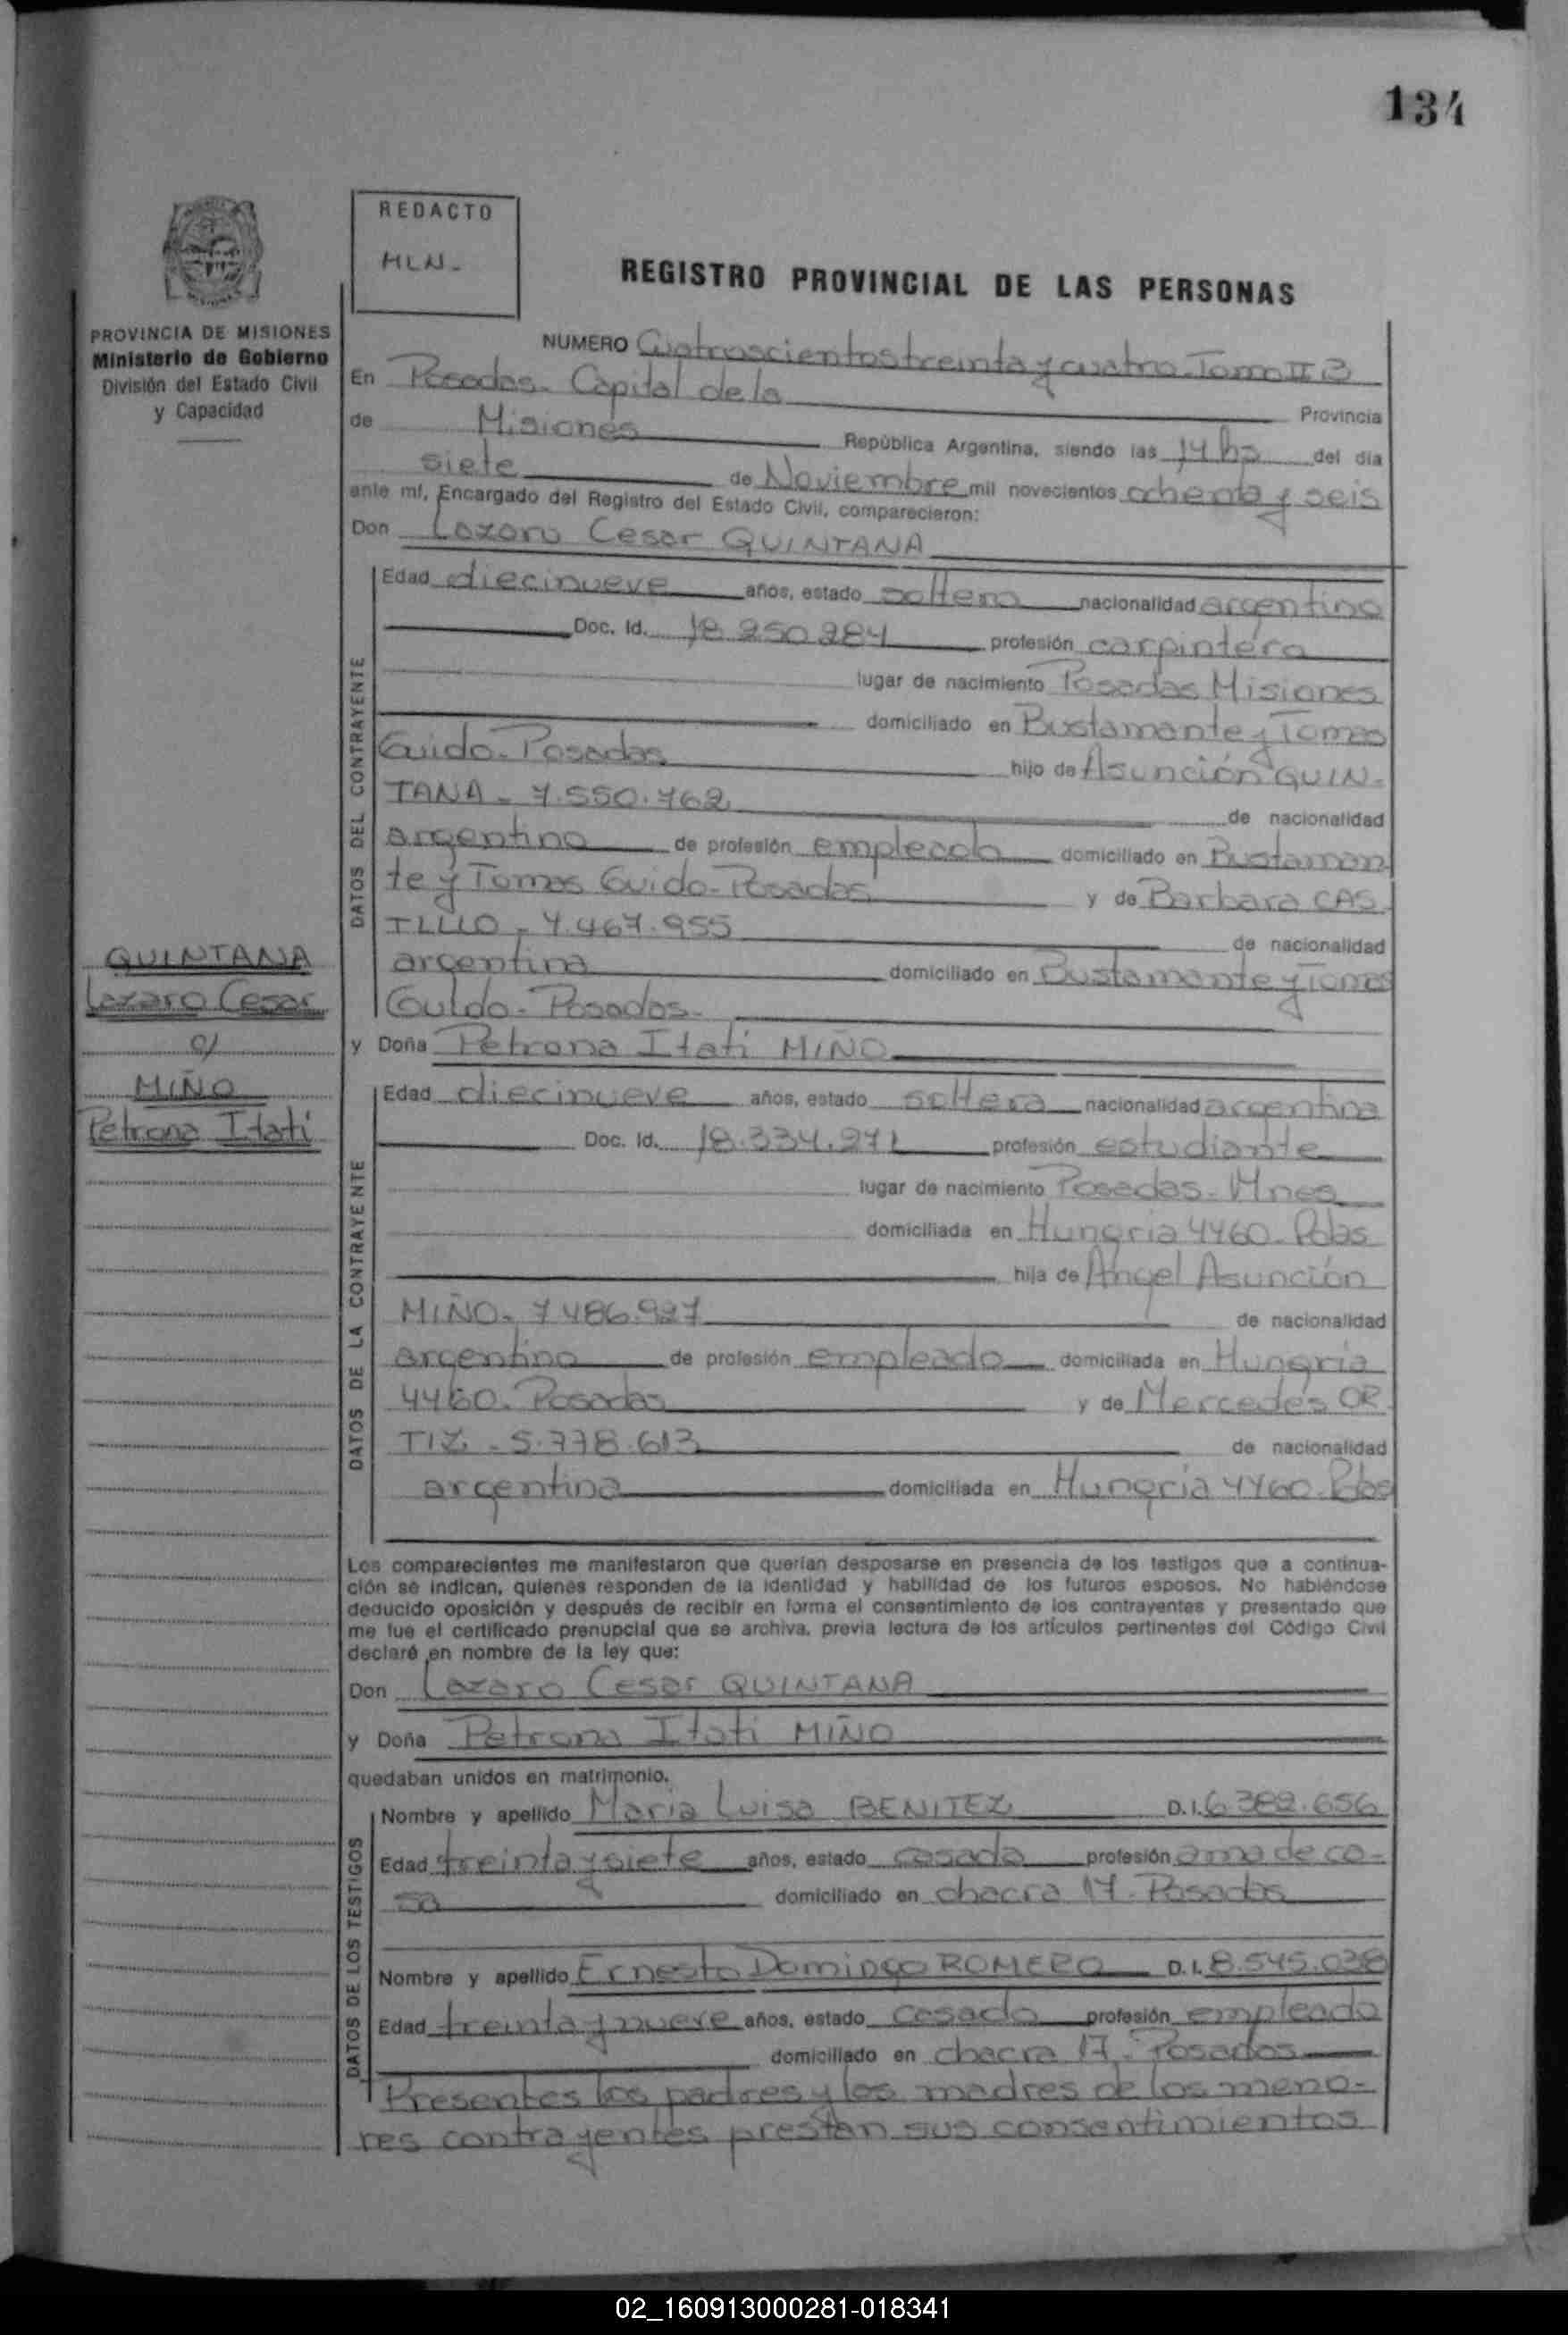 134
REDACTO
MLN-
REGISTRO PROVINCIAL DE LAS PERSONAS
PROVINCIA DE MISIONES
Ministerio de Gobierno
División del Estado Civil
y Capacidad
NUMERO Cuatroscientos treinta y cuatro. Tomo II B
En Posadas. Capital de la Provincia
de Misiones República Argentina, siendo las 14 hs del día
siete de Noviembre mil novecientos ochenta y seis
ante mí, Encargado del Registro del Estado Civil, comparecieron:
Don Lazaro Cesar QUINTANA
DATOS DEL CONTRAYENTE
Edad diecinueve años, estado soltero nacionalidad argentino
Doc. Id. 18.250.284 profesión carpintero
lugar de nacimiento Posadas Misiones
domiciliado en Bustamante y Tomas
Guido-Posadas hijo de Asunción QUIN-
TANA - 7.550.762 de nacionalidad
argentino de profesión empleado domiciliado en Bustaman
te y Tomas Guido-Posadas y de Barbara CAS
TILLO - 4.467.955 de nacionalidad
argentina domiciliado en Bustamante y Tomas
Guido-Posadas-
QUINTANA
Lazaro Cesar
c/
MIÑO
Petrona Itati
y Doña Petrona Itati MIÑO
DATOS DE LA CONTRAYENTE
Edad diecinueve años, estado soltera nacionalidad argentina
Doc. Id. 18.334.271 profesión estudiante
lugar de nacimiento Posadas-Mnes
domiciliada en Hungria 4460-Pdas
hija de Angel Asunción
MIÑO- 7486.927 de nacionalidad
argentino de profesión empleado domiciliada en Hungria
4460. Posadas y de Mercedes OR
TIZ - 5.778.613 de nacionalidad
argentina domiciliada en Hungria 4460-Pdas
Los comparecientes me manifestaron que querían desposarse en presencia de los testigos que a continua-
ción se indican, quienes responden de la identidad y habilidad de los futuros esposos. No habiéndose
deducido oposición y después de recibir en forma el consentimiento de los contrayentes y presentado que
me fue el certificado prenupcial que se archiva, previa lectura de los artículos pertinentes del Código Civil
declaré en nombre de la ley que:
Don Lazaro Cesar QUINTANA
y Doña Petrona Itati MIÑO
quedaban unidos en matrimonio.
DATOS DE LOS TESTIGOS
Nombre y apellido Maria Luisa BENITEZ D.I. 6.382.656
Edad treinta y siete años, estado casada profesión ama de ca-
sa domiciliado en chacra 17. Posadas
Nombre y apellido Ernesto Domingo ROMERO D.I. 8.545.038
Edad treinta y nueve años, estado casado profesión empleado
domiciliado en chacra 17. Posadas
Presentes los padres y las madres de los meno-
res contrayentes prestan sus consentimientos
02_160913000281-018341